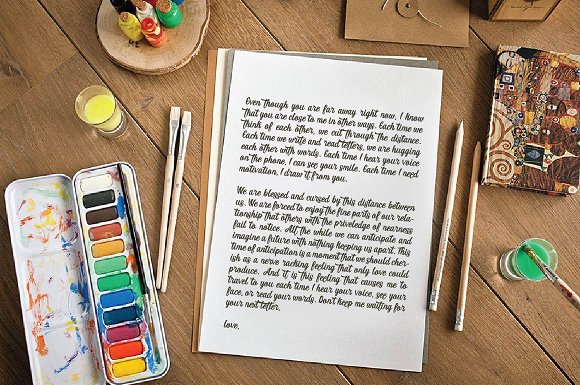 Even though you are far away right now, I know
that you are close to me in other ways. Each time we
think of each other, we cut through the distance.
Each time we write and read letters, we are hugging
each other with words. Each time I hear your voice
on the phone, I can see your smile. Each time I need
motivation, I draw it from you.
We are blessed and cursed by this distance between
us. We are forced to enjoy the fine parts of our rela-
tionship that others with the priviledge of nearness
fail to notice. All the while we can anticipate and
imagine a future with nothing keeping us apart. This
time of anticipation is a moment that we should cher-
ish as a nerve racking feeling that only love could
produce. And it is this feeling that causes me to
travel to you each time I hear your voice, see your
face, or read your words. Don't keep me waiting for
your next letter.
love,